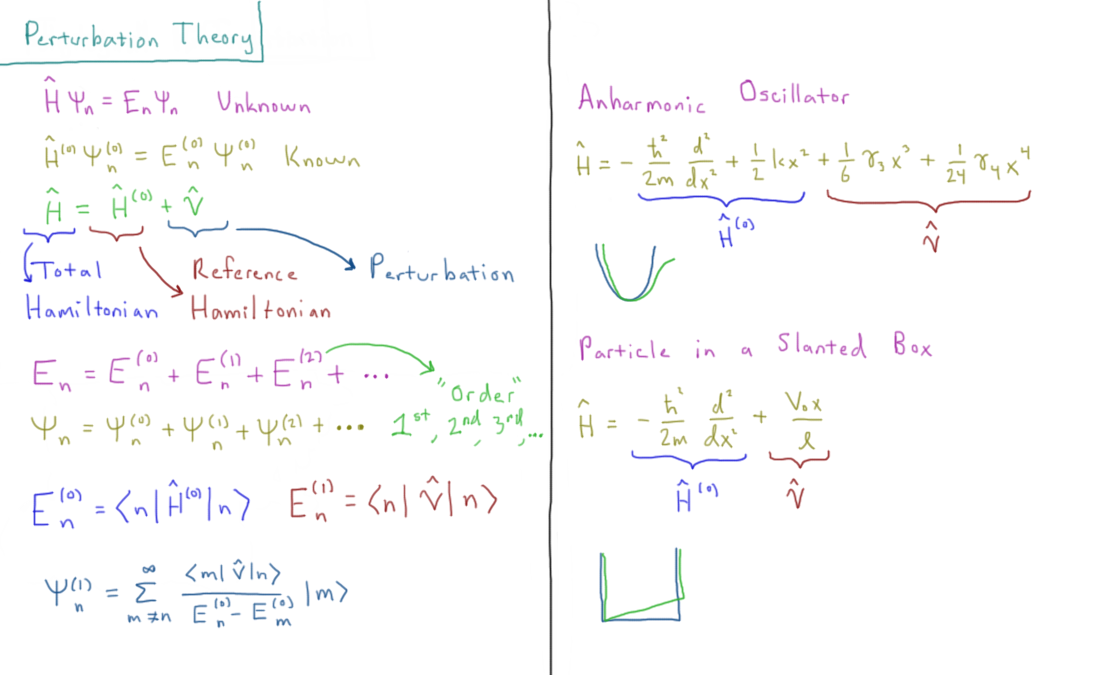 Perturbation Theory
Ĥ Ψₙ = Eₙ Ψₙ Unknown
Ĥ⁽⁰⁾ Ψₙ⁽⁰⁾ = Eₙ⁽⁰⁾ Ψₙ⁽⁰⁾ Known
Ĥ = Ĥ⁽⁰⁾ + V̂
Total Hamiltonian
Reference Hamiltonian
Perturbation
Eₙ = Eₙ⁽⁰⁾ + Eₙ⁽¹⁾ + Eₙ⁽²⁾ + ...
"Order"
Ψₙ = Ψₙ⁽⁰⁾ + Ψₙ⁽¹⁾ + Ψₙ⁽²⁾ + ... 1st, 2nd, 3rd, ...
Eₙ⁽⁰⁾ = ⟨n|Ĥ⁽⁰⁾|n⟩ Eₙ⁽¹⁾ = ⟨n|V̂|n⟩
Ψₙ⁽¹⁾ = ∑_{m≠n}^{∞} ⟨m|V̂|n⟩ / (Eₙ⁽⁰⁾ - Eₘ⁽⁰⁾) |m⟩
Anharmonic Oscillator
Ĥ = - ħ²/2m d²/dx² + 1/2 kx² + 1/6 γ₃x³ + 1/24 γ₄x⁴
Ĥ⁽⁰⁾ V̂
Particle in a Slanted Box
Ĥ = - ħ²/2m d²/dx² + V₀x/ℓ
Ĥ⁽⁰⁾ V̂